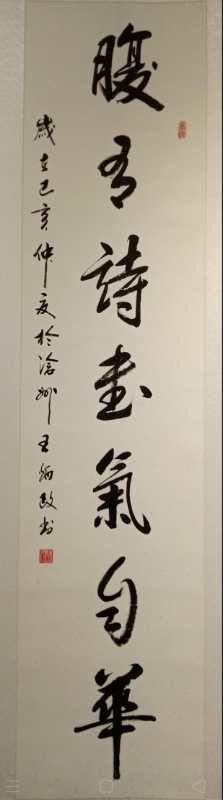 腹有詩書氣自華
歲在己亥仲夏於滄州王炳政书